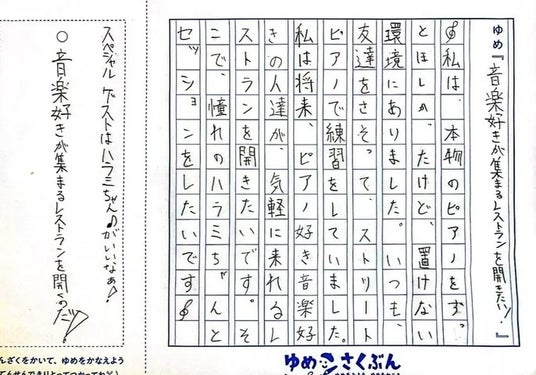 ゆめ『音楽好きが集まるレストランを開きたい。』
𝄞私は、本物のピアノをずっ
とほしかったけど、置けない
環境にありました。いつも、
友達をさそって、ストリート
ピアノで練習をしていました。
私は将来、ピアノ好き音楽好
きの人達が、気軽に来れるレ
ストランを開きたいです。そ
こで、憧れのハラミちゃんと
セッションをしたいです𝄞
ゆめさくぶん
スペシャルゲストはハラミちゃん♪がいいなぁ♪
○音楽好きが集まるレストランを開くのだ!
んざくをかいて、ゆめをかなえよう